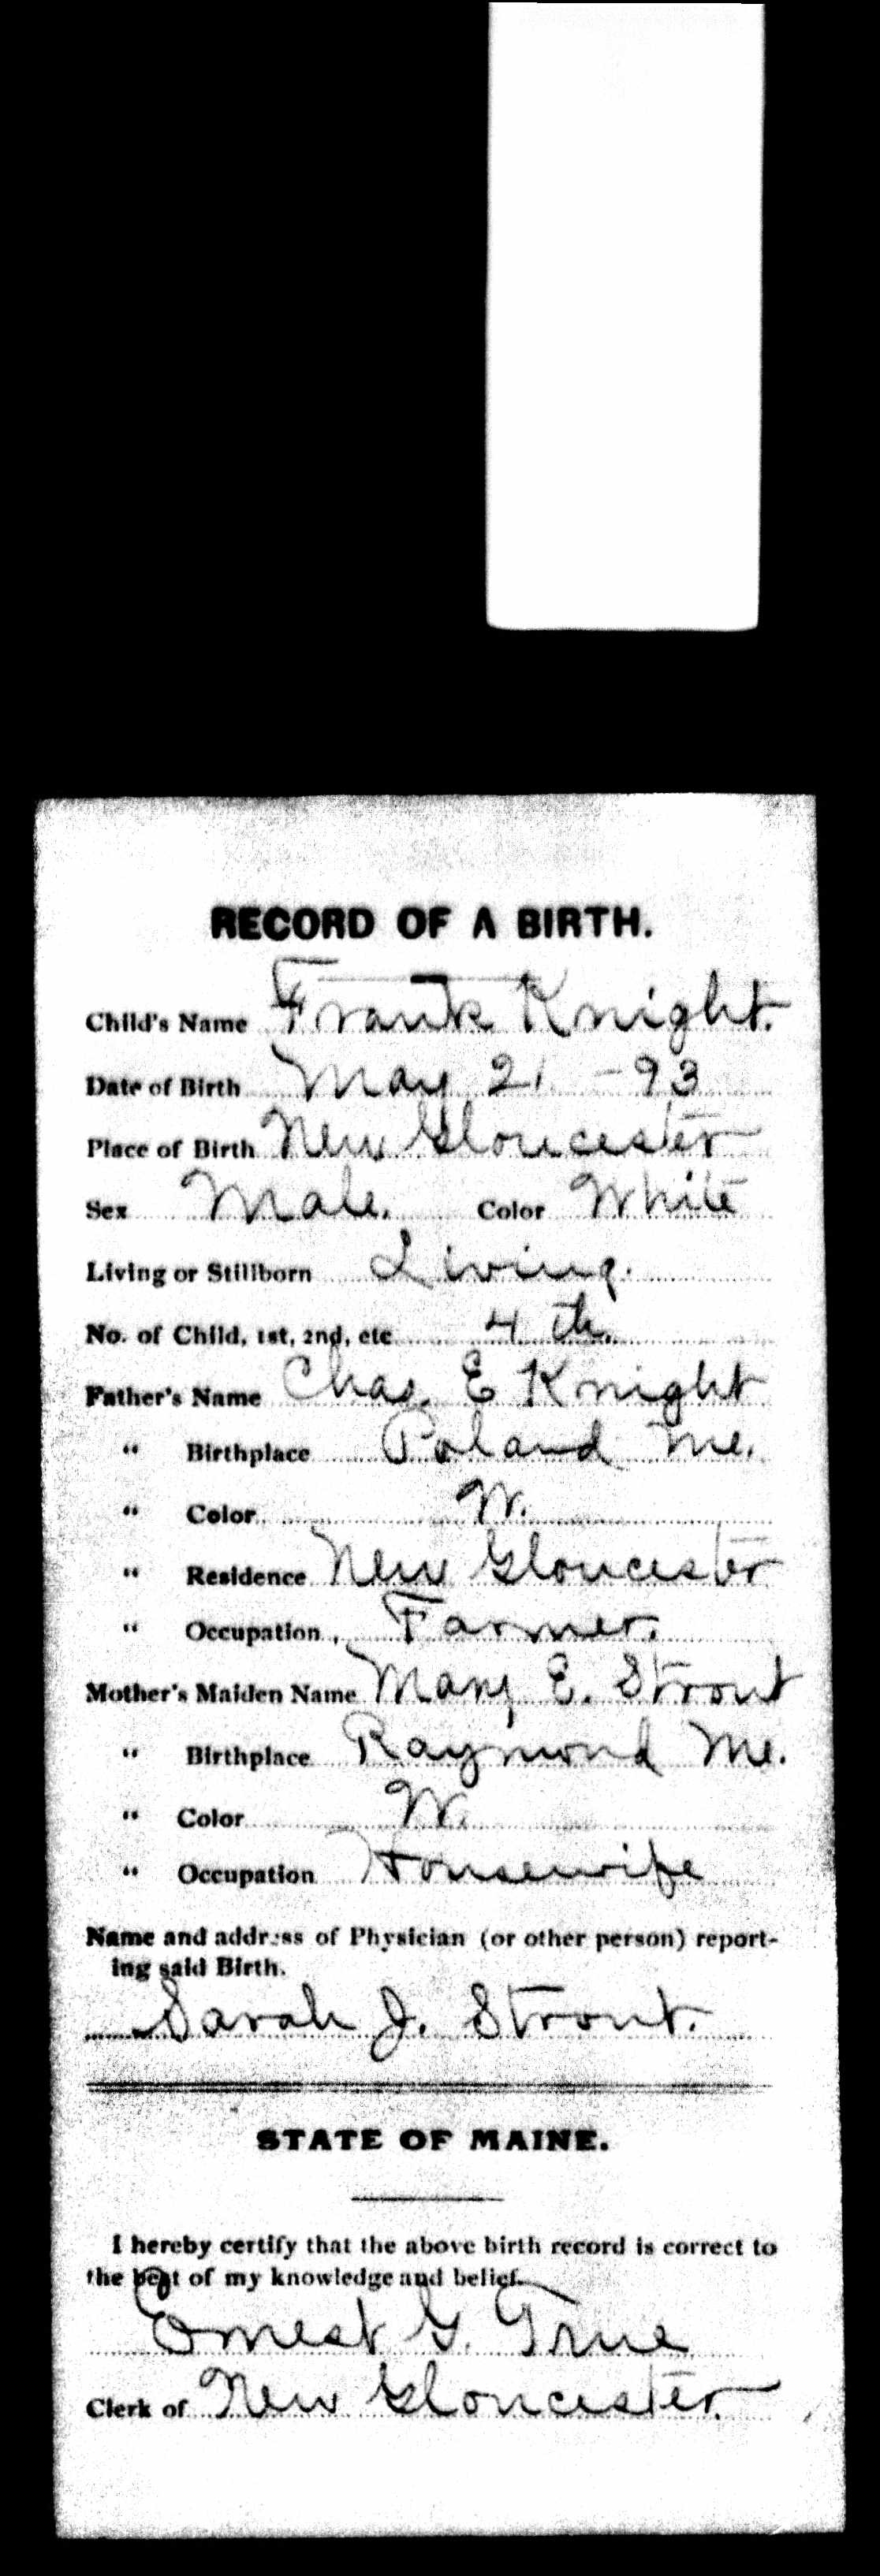 RECORD OF A BIRTH.
Child's Name Frank Knight.
Date of Birth May 21 - 93
Place of Birth New Gloucester
Sex Male. Color White
Living or Stillborn Living.
No. of Child, 1st, 2nd, etc 4 th.
Father's Name Chas. E Knight
" Birthplace Poland Me.
" Color W.
" Residence New Gloucester
" Occupation Farmer.
Mother's Maiden Name Mary E. Strout
" Birthplace Raymond Me.
" Color W.
" Occupation Housewife
Name and address of Physician (or other person) report-
ing said Birth.
Sarah J. Strout.
STATE OF MAINE.
I hereby certify that the above birth record is correct to
the best of my knowledge and belief.
Ernest G. True
Clerk of New Gloucester.